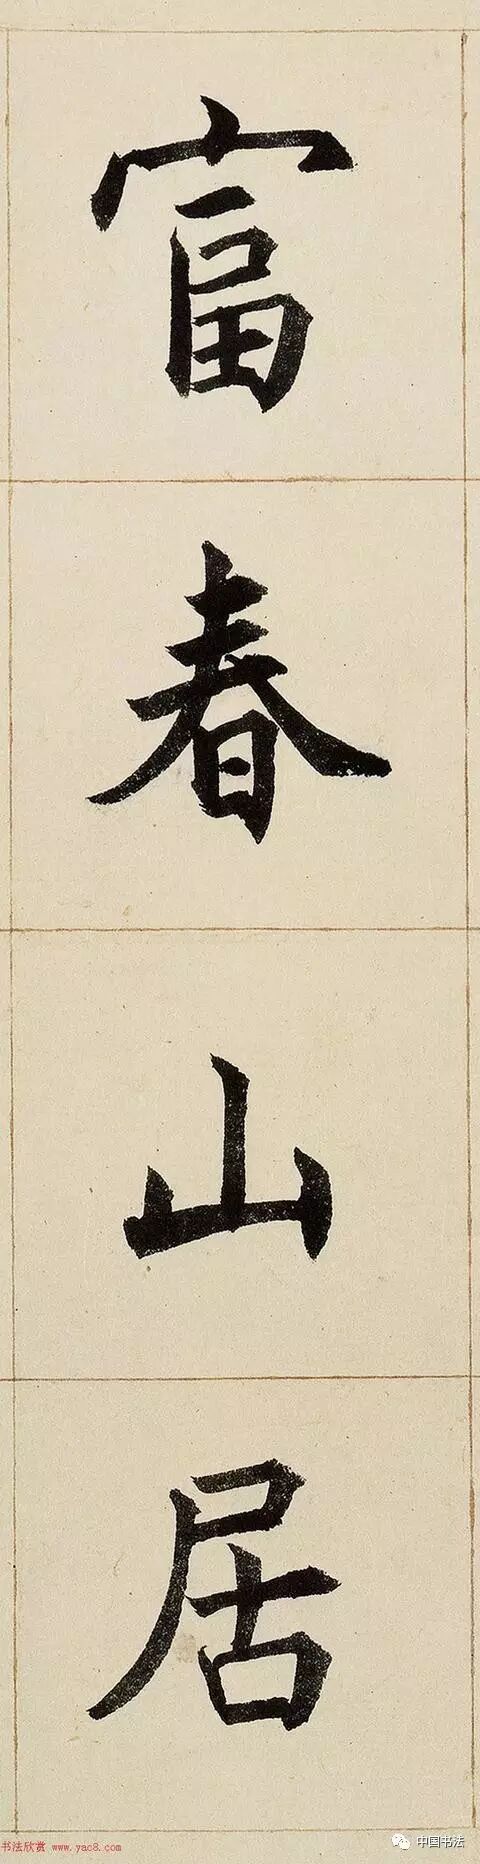 富春山居
书法欣赏 www.yac8.com
中国书法